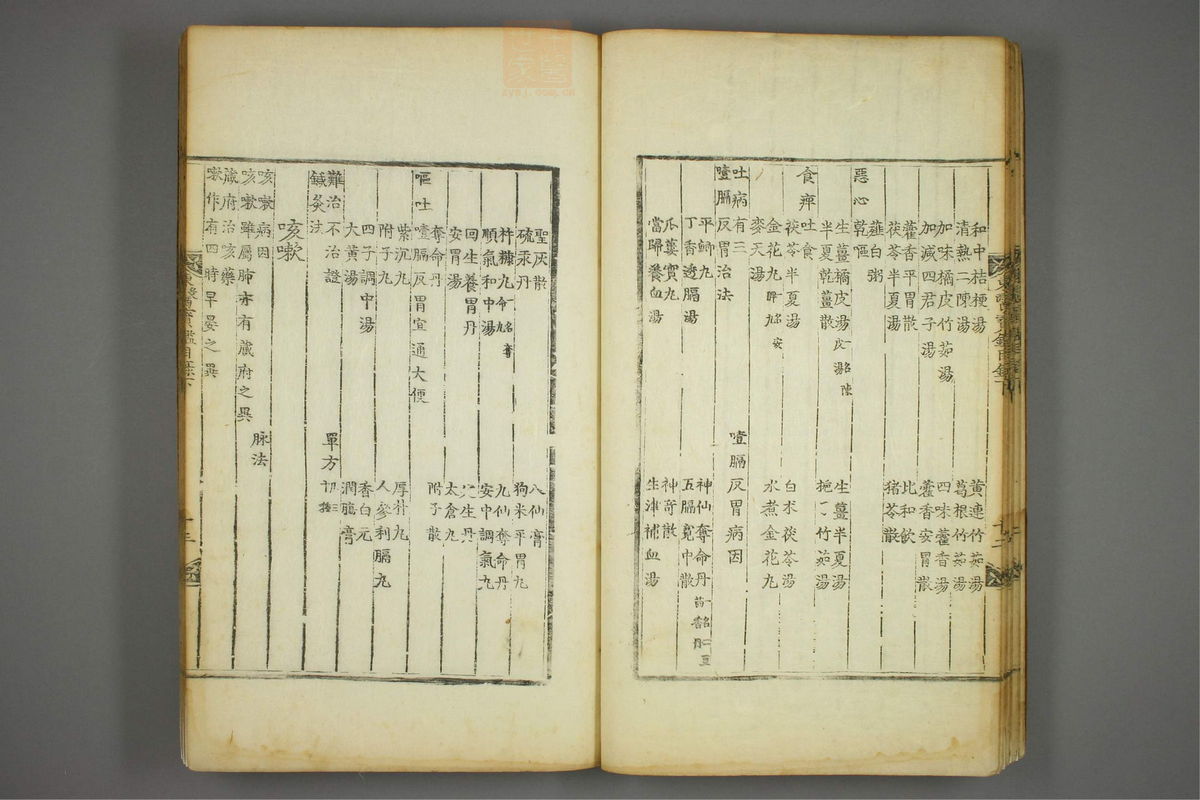 和中桔梗湯 黃連竹茹湯
清熱二陳湯 葛根竹茹湯
加味橘皮竹茹湯 四味藿香湯
加減四君子湯 藿香安胃散
藿香平胃散 比和飮
茯苓半夏湯 猪苓散
薤白粥
惡心
乾嘔
生薑橘皮湯 一名陳皮湯 生薑半夏湯
半夏乾薑散 梔子竹茹湯
食痺吐食
茯苓半夏湯 白朮茯苓湯
金花丸 一名安脾丸 水煮金花丸
麥天湯
吐病有三 噎膈反胃病因
噎膈反胃治法
平歸丸 神仙奪命丹
丁香透膈湯 五膈寬中散
瓜蔞實丸 神奇散
當歸養血湯 生津補血湯
聖灰散 八仙膏
硫汞丹 狗米平胃丸
杵糠丸 一名奪命丸 九仙奪命丹
順氣和中湯 安中調氣丸
回生養胃丹
安胃湯 太倉丸
奪命丹 附子散
嘔吐噎膈反胃宜通大便
紫沉丸 厚朴丸
附子丸 人參利膈丸
四子調中湯 香白元
大黃湯 潤腸膏
難治不治證 單方
鍼灸法
咳嗽
咳嗽病因 脉法
咳嗽雖屬肺亦有藏府之異
藏府治咳藥
嗽作有四時早晏之異
東醫寶鑑目錄下
十二
十三